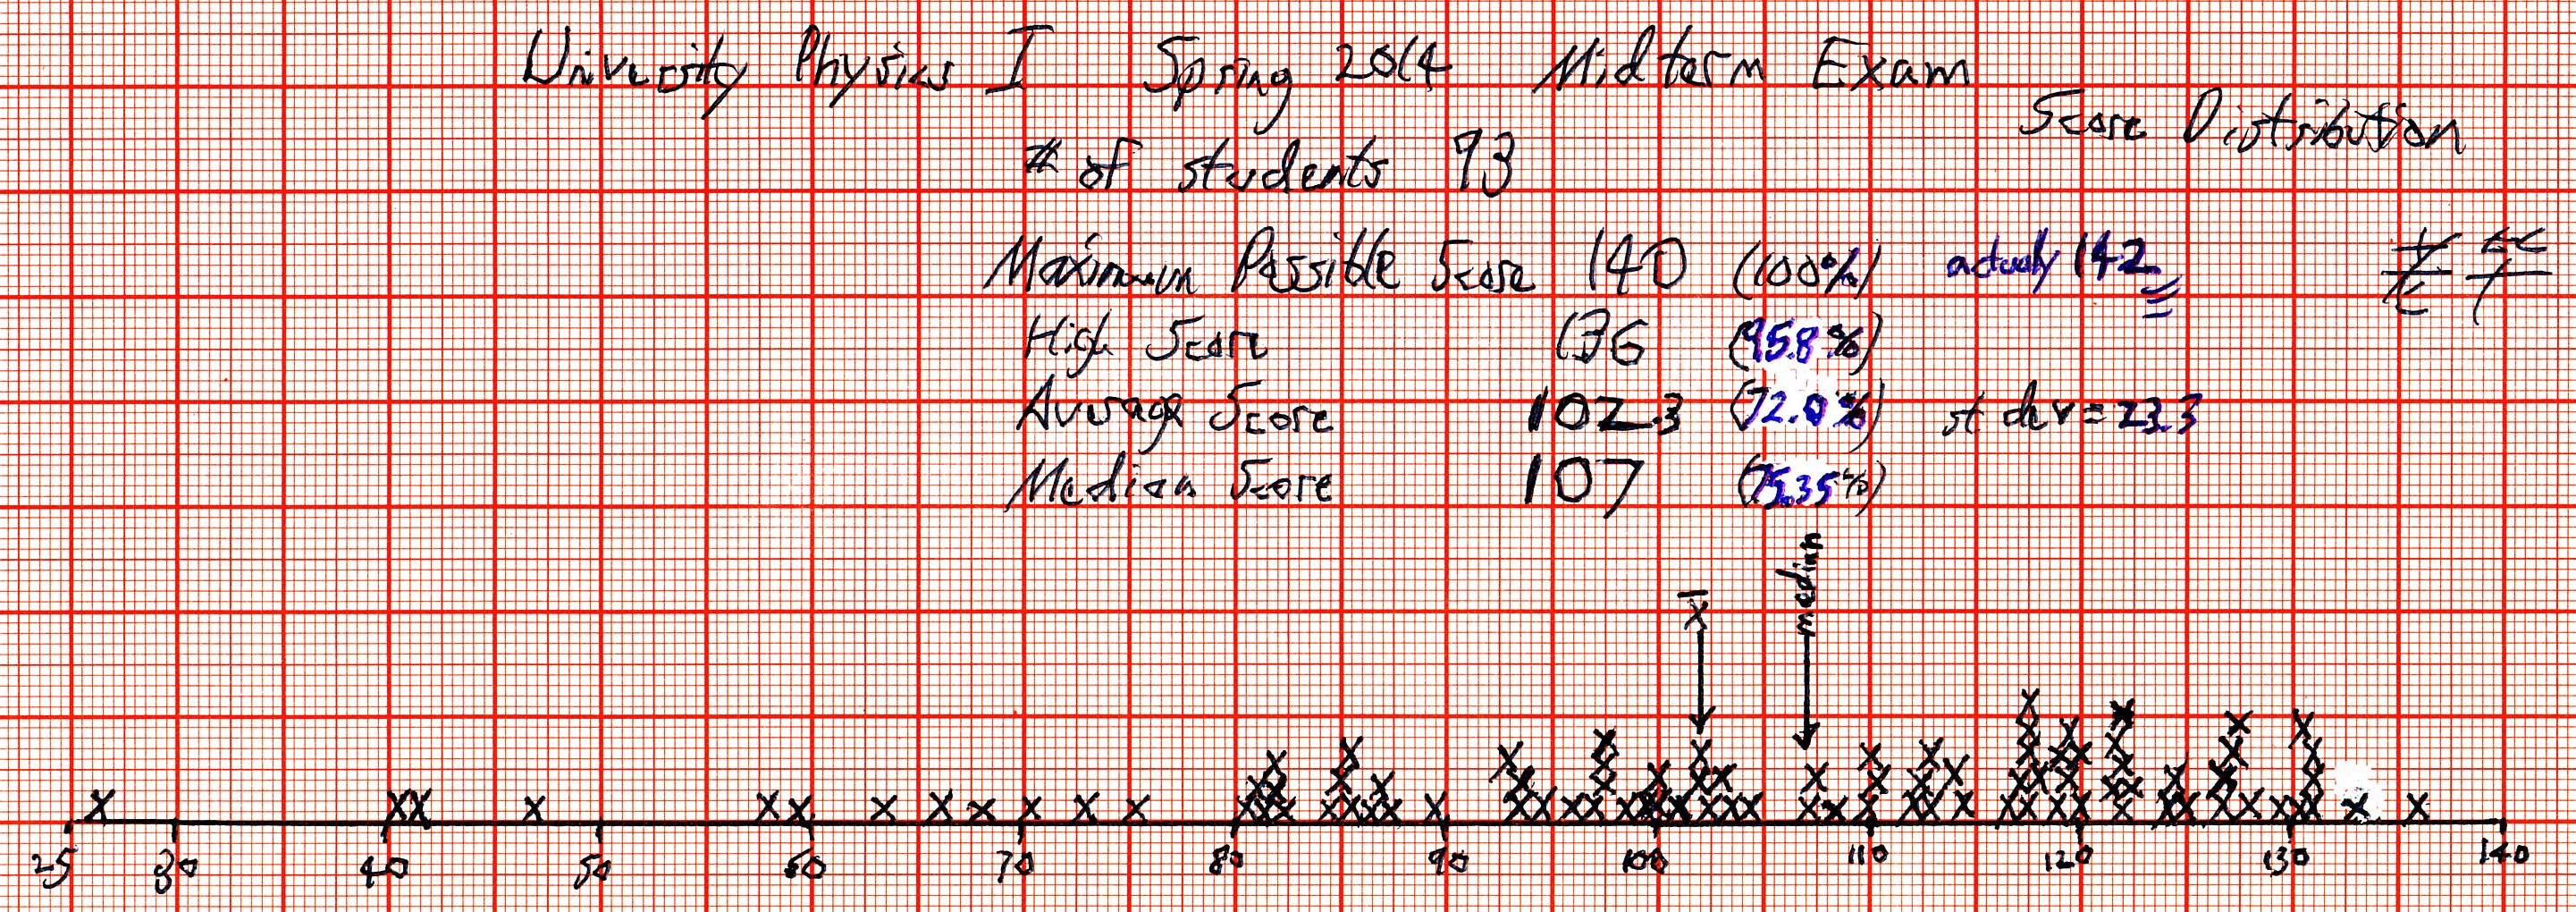 University Physics I Spring 2014 Midterm Exam
Score Distribution
# of students 93
Maximum Possible Score 140 (100%) actually 142
High Score 136 (95.8%)
Average Score 102.3 (72.0%) st dev = 23.3
Median Score 107 (75.35%)
x̄ median
25 30 40 50 60 70 80 90 100 110 120 130 140